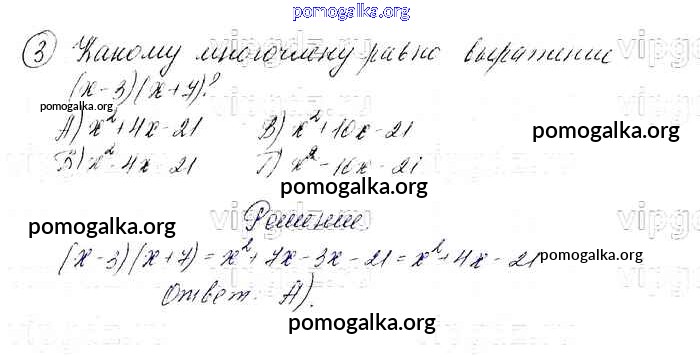 pomogalka.org
3 Какому многочлену равно выражение
(x-3)(x+7)?
pomogalka.org
А) x²+4x-21 В) x²+10x-21
pomogalka.org
Б) x²-4x-21 Г) x²-10x-21
pomogalka.org
Решение.
pomogalka.org
(x-3)(x+7) = x²+7x-3x-21 = x²+4x-21
pomogalka.org
Ответ: А).
pomogalka.org